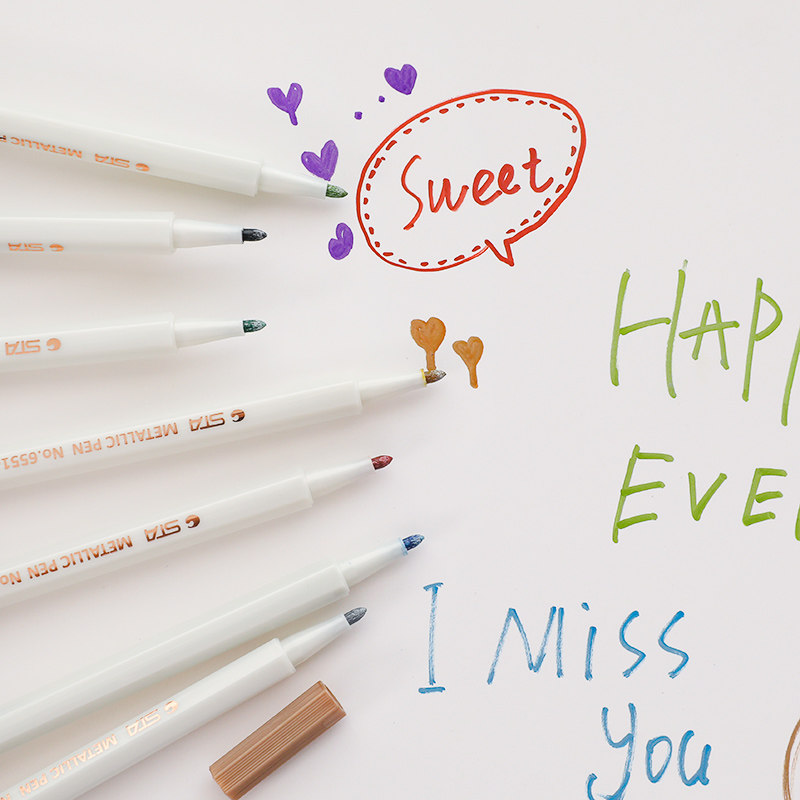 Sweet
HAPP
EVE
I Miss
you
STA METALLIC PEN
STA
STA
STA METALLIC PEN No.6551
STA METALLIC PEN No
STA METALLIC PEN